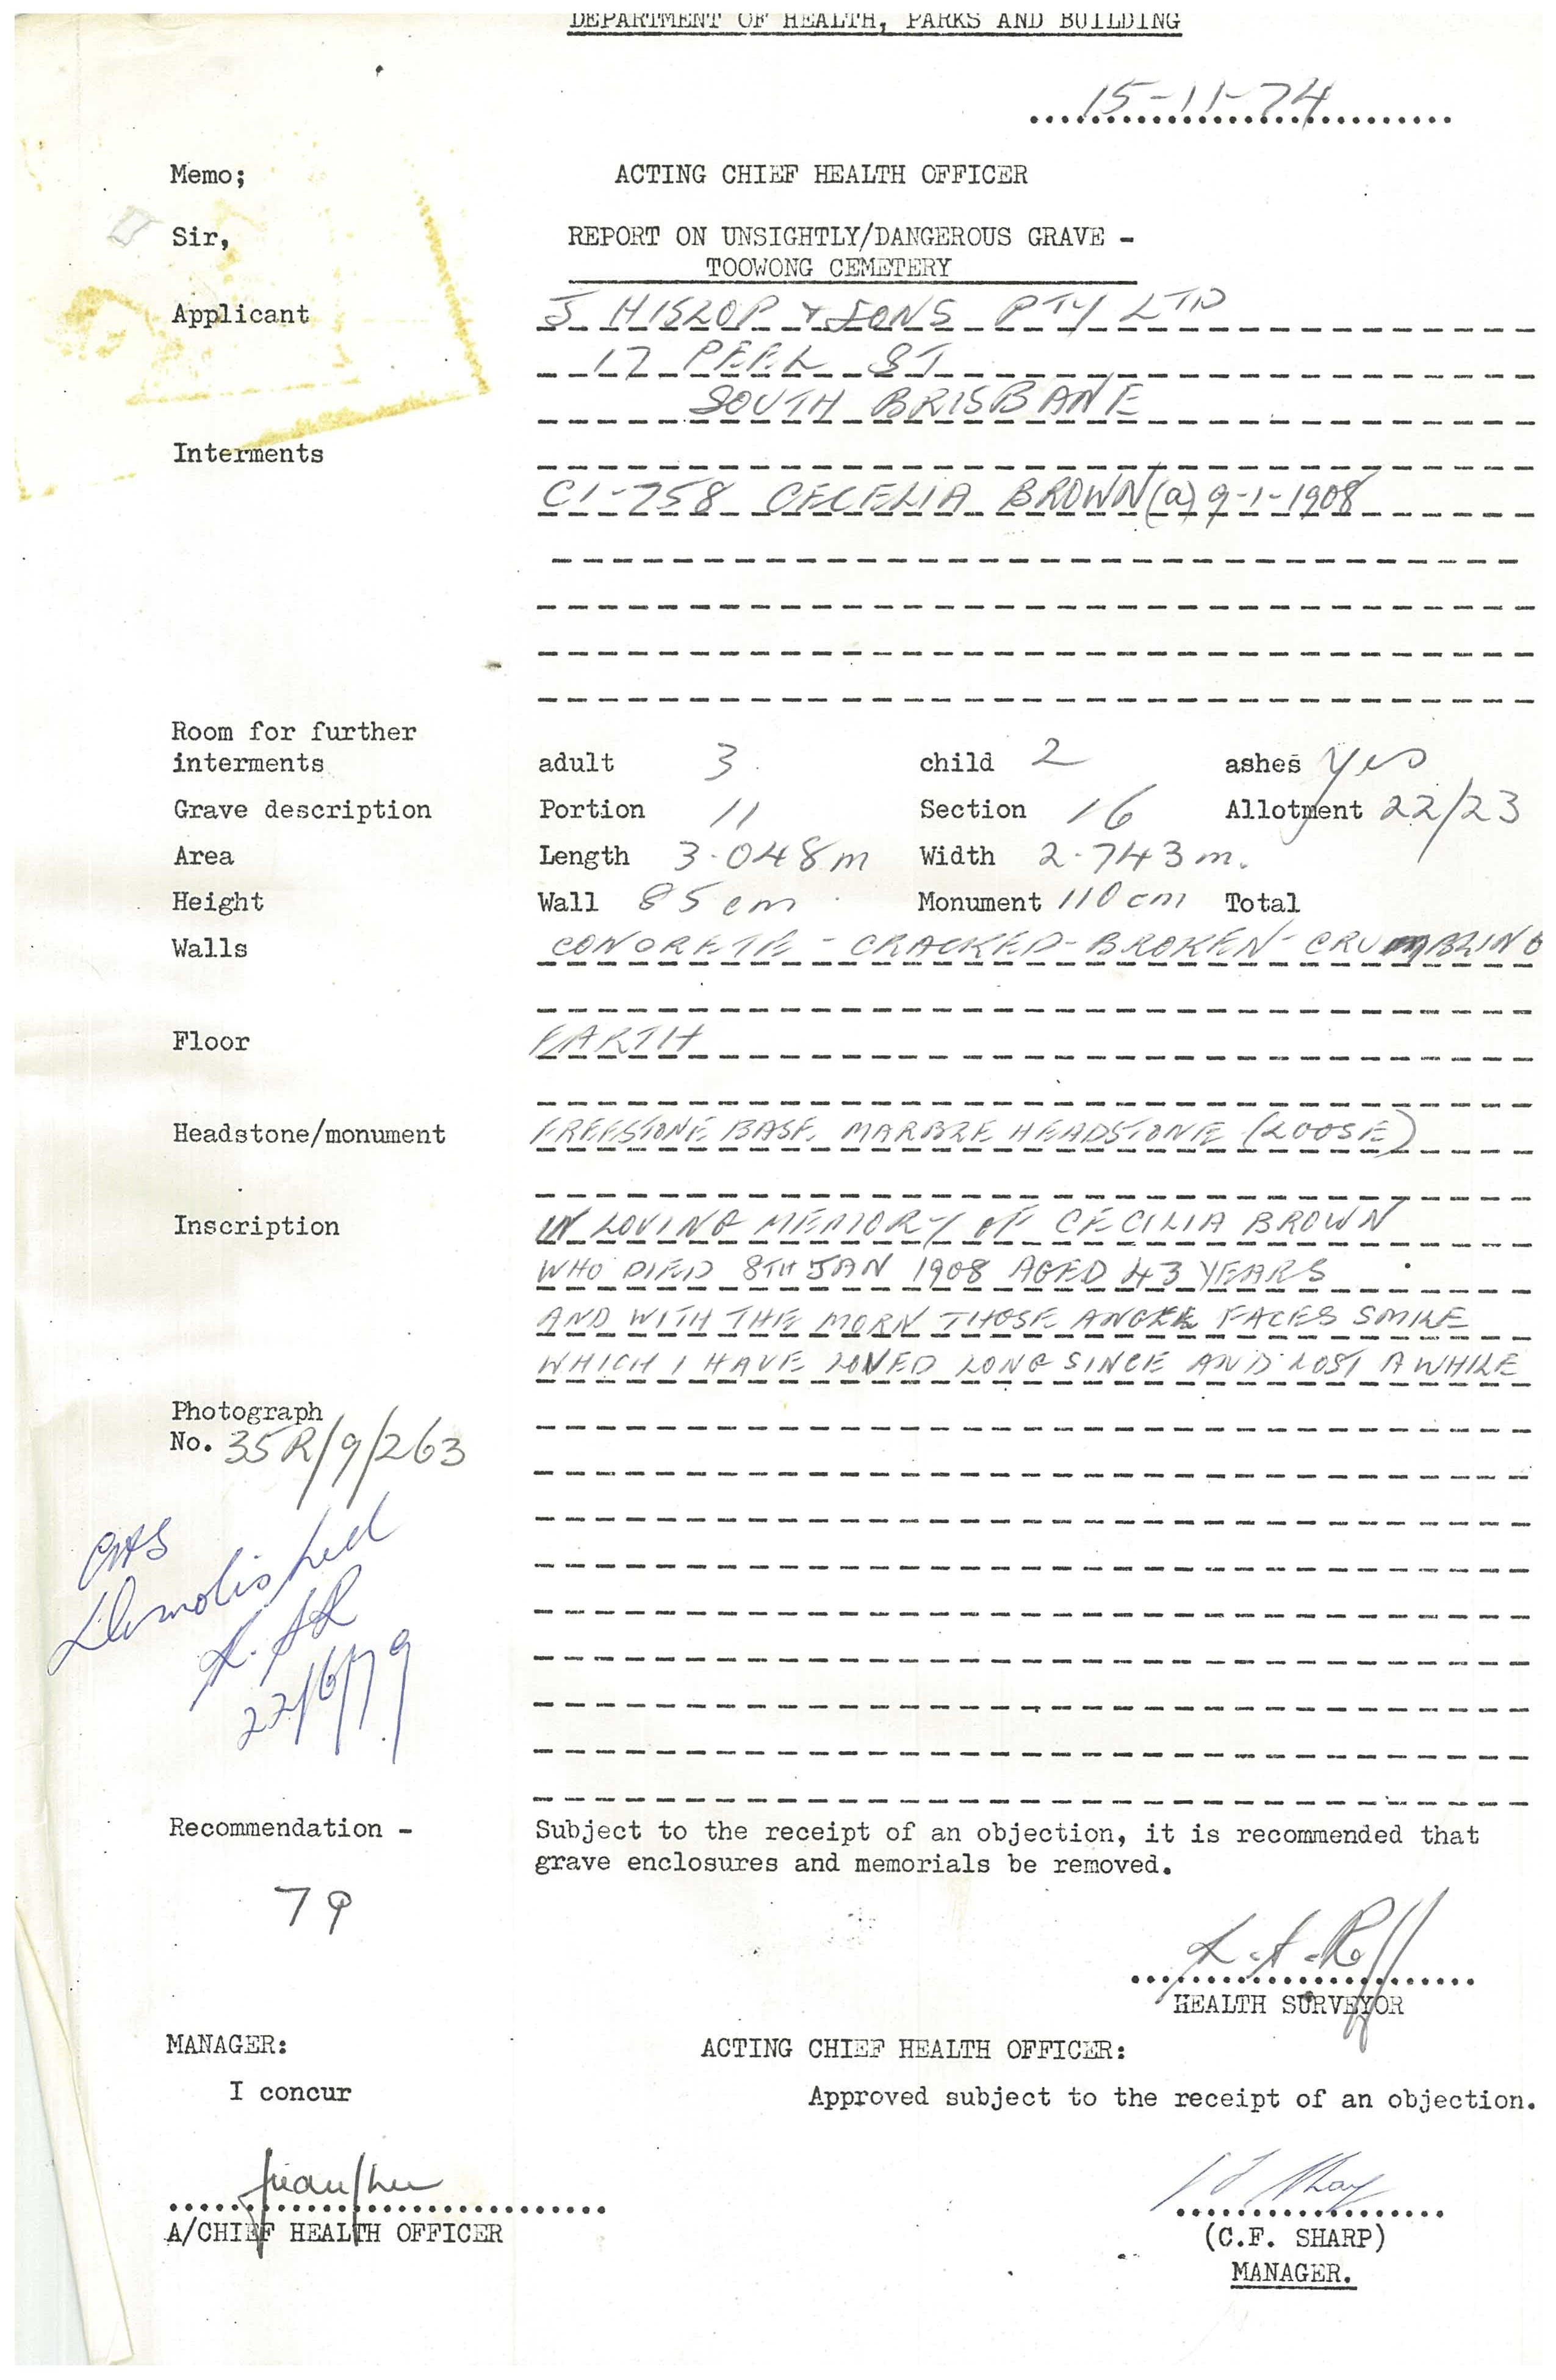 DEPARTMENT OF HEALTH, PARKS AND BUILDING
15-11-74
Memo; ACTING CHIEF HEALTH OFFICER
Sir, REPORT ON UNSIGHTLY/DANGEROUS GRAVE -
TOOWONG CEMETERY
Applicant J HISLOP & SONS PTY LTD
17 PEEL ST
SOUTH BRISBANE
Interments
C1-758 CECELIA BROWN (a) 9-1-1908
Room for further
interments adult 3 child 2 ashes Yes
Grave description Portion 11 Section 16 Allotment 22/23
Area Length 3.048m Width 2.743m.
Height Wall 85cm Monument 110cm Total
Walls CONCRETE - CRACKED - BROKEN - CRUMBLING
Floor EARTH
Headstone/monument FREESTONE BASE MARBLE HEADSTONE (LOOSE)
Inscription IN LOVING MEMORY OF CECILIA BROWN
WHO DIED 8TH JAN 1908 AGED 43 YEARS
AND WITH THE MORN THOSE ANGEL FACES SMILE
WHICH I HAVE LOVED LONG SINCE AND LOST A WHILE
Photograph
No. 35R/9/263
Demolished
22/6/79
Recommendation - Subject to the receipt of an objection, it is recommended that
grave enclosures and memorials be removed.
79
HEALTH SURVEYOR
MANAGER: ACTING CHIEF HEALTH OFFICER:
I concur Approved subject to the receipt of an objection.
A/CHIEF HEALTH OFFICER (C.F. SHARP)
MANAGER.